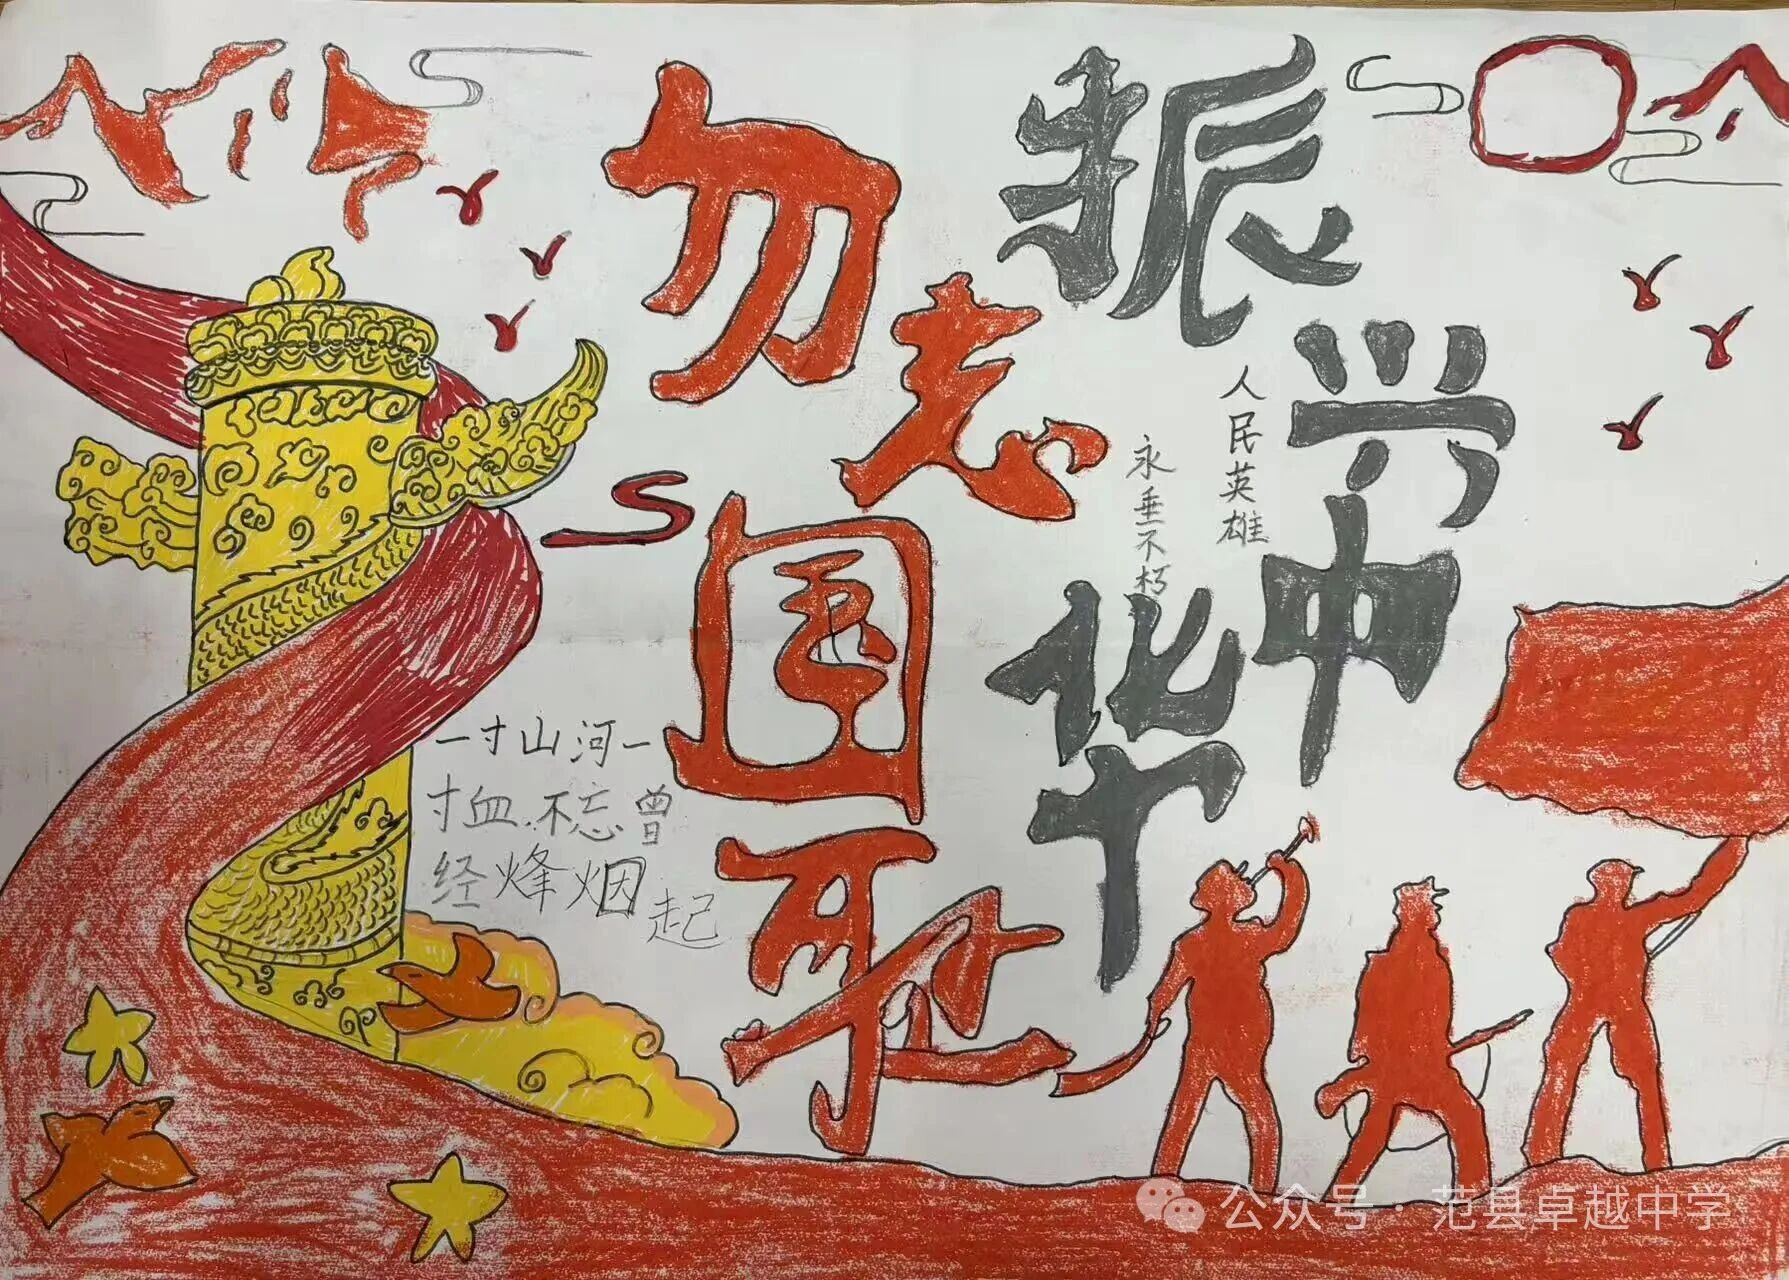 勿忘国耻
振兴中华
人民英雄
永垂不朽
一寸山河一
寸血.不忘曾
经烽烟起
公众号 · 范县卓越中学